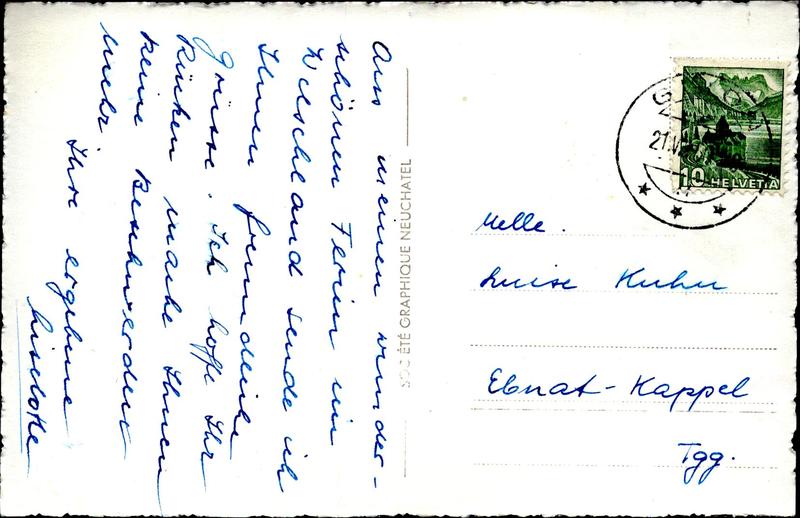 Aus meinen wunder-
schönen Ferien im
Welschland sende ich
Ihnen freundliche
Grüsse. Ich hoffe Ihr
Rücken mache Ihnen
keine Beschwerden
mehr
Ihre ergebene
Liselotte
SOCIÉTÉ GRAPHIQUE NEUCHATEL
21.V
10 HELVETIA
Melle.
Luise Kuhn
Ebnat-Kappel
Tgg.